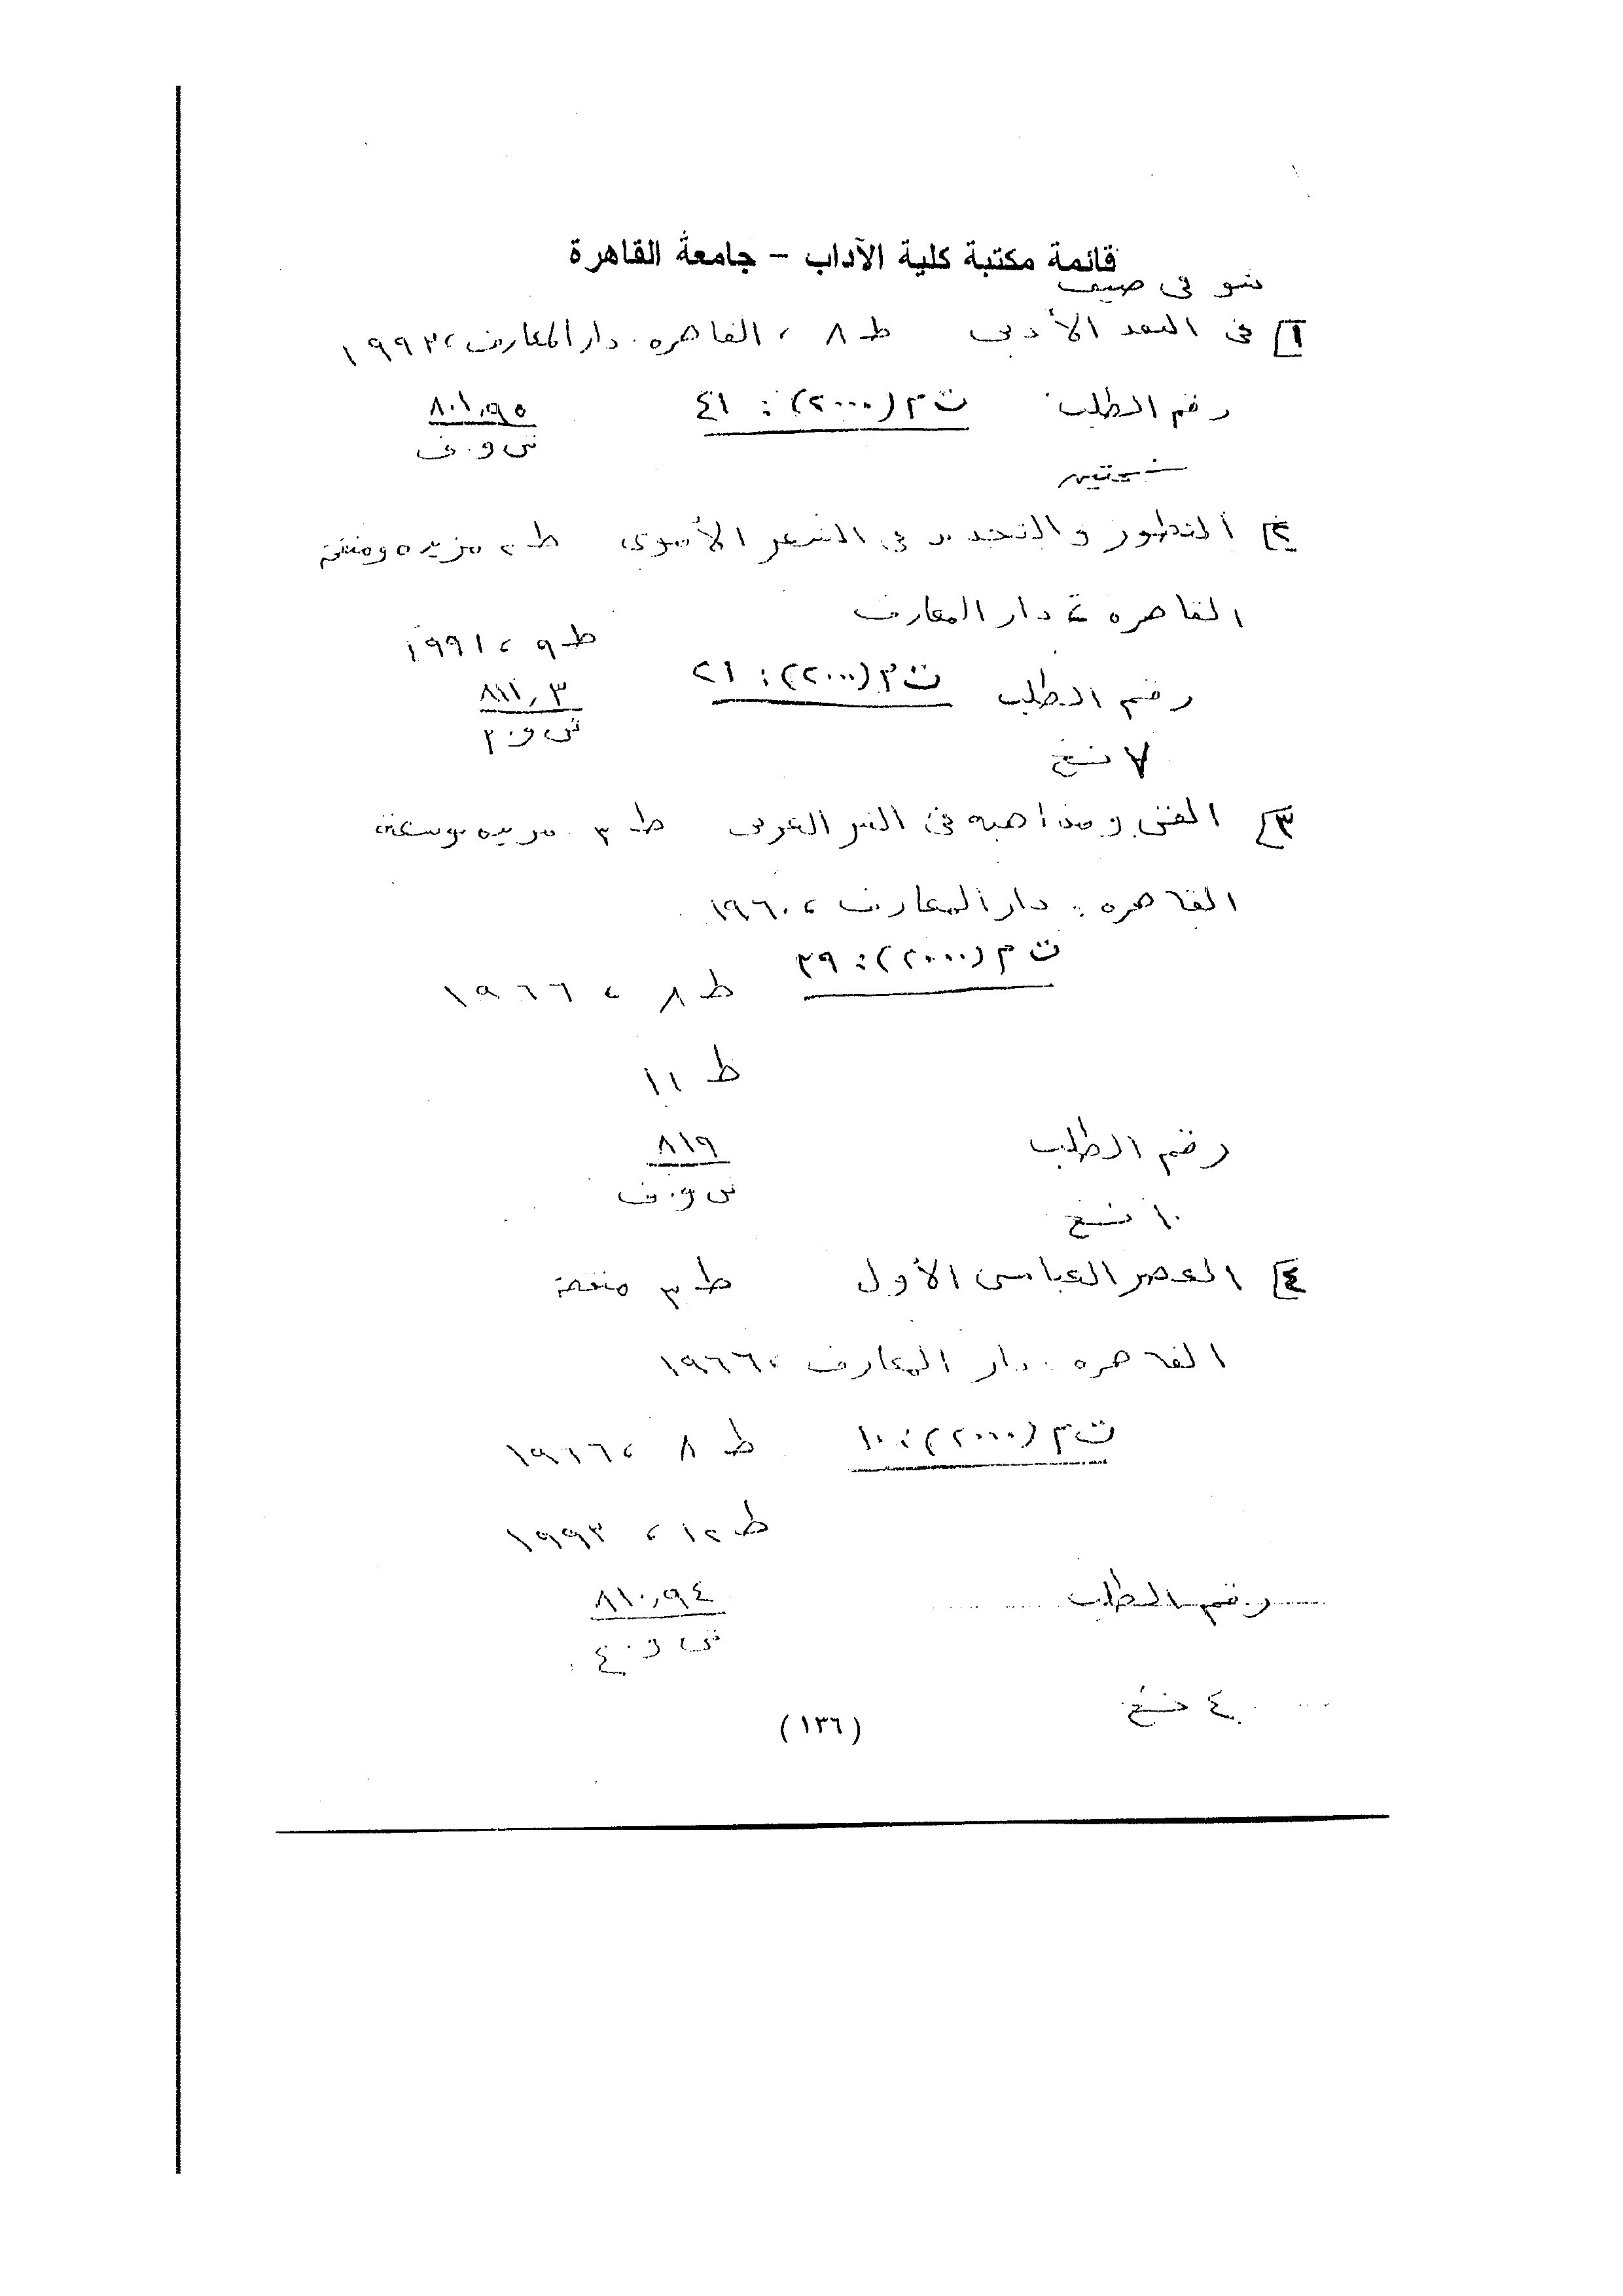 قائمة مكتبة كلية الآداب - جامعة القاهرة
شوقى ضيف
١] فى النقد الأدبى ط ٨ ، القاهره . دار المعارف ، ١٩٩٣
رقم الطلب ت م (٢٠٠٠) : ٤١ ٨٠١,٩٥
ش و . ف
نسختين
٢] التطور والتجديد فى الشعر الأموى ط ٢ مزيده ومنقحة
القاهره ، دار المعارف
ط ٩ ، ١٩٩١
رقم الطلب ت م (٢٠٠٠) : ٢١ ٨١١,٣
ش و .
٧ نسخ
٣] الفن ومذاهبه فى النثر العربى ط ٣ . مزيده موسعة
القاهره : دار المعارف ، ١٩٦٠
ت م (٢٠٠٠) : ٣٩
ط ٨ ، ١٩٦٦
ط ١١
رقم الطلب ٨١٩
ش و . ف
١٠ نسخ
٤] العصر العباسى الأول ط ٣ منقحة
القاهره . دار المعارف ، ١٩٦٦
ت م (٢٠٠٠) : ١٠ ط ٨ ، ١٩٦٦
ط ١٢ ، ١٩٩٣
رقم الطلب ٨١٠,٩٤
ش و . ع
٤ نسخ
(١٣٦)